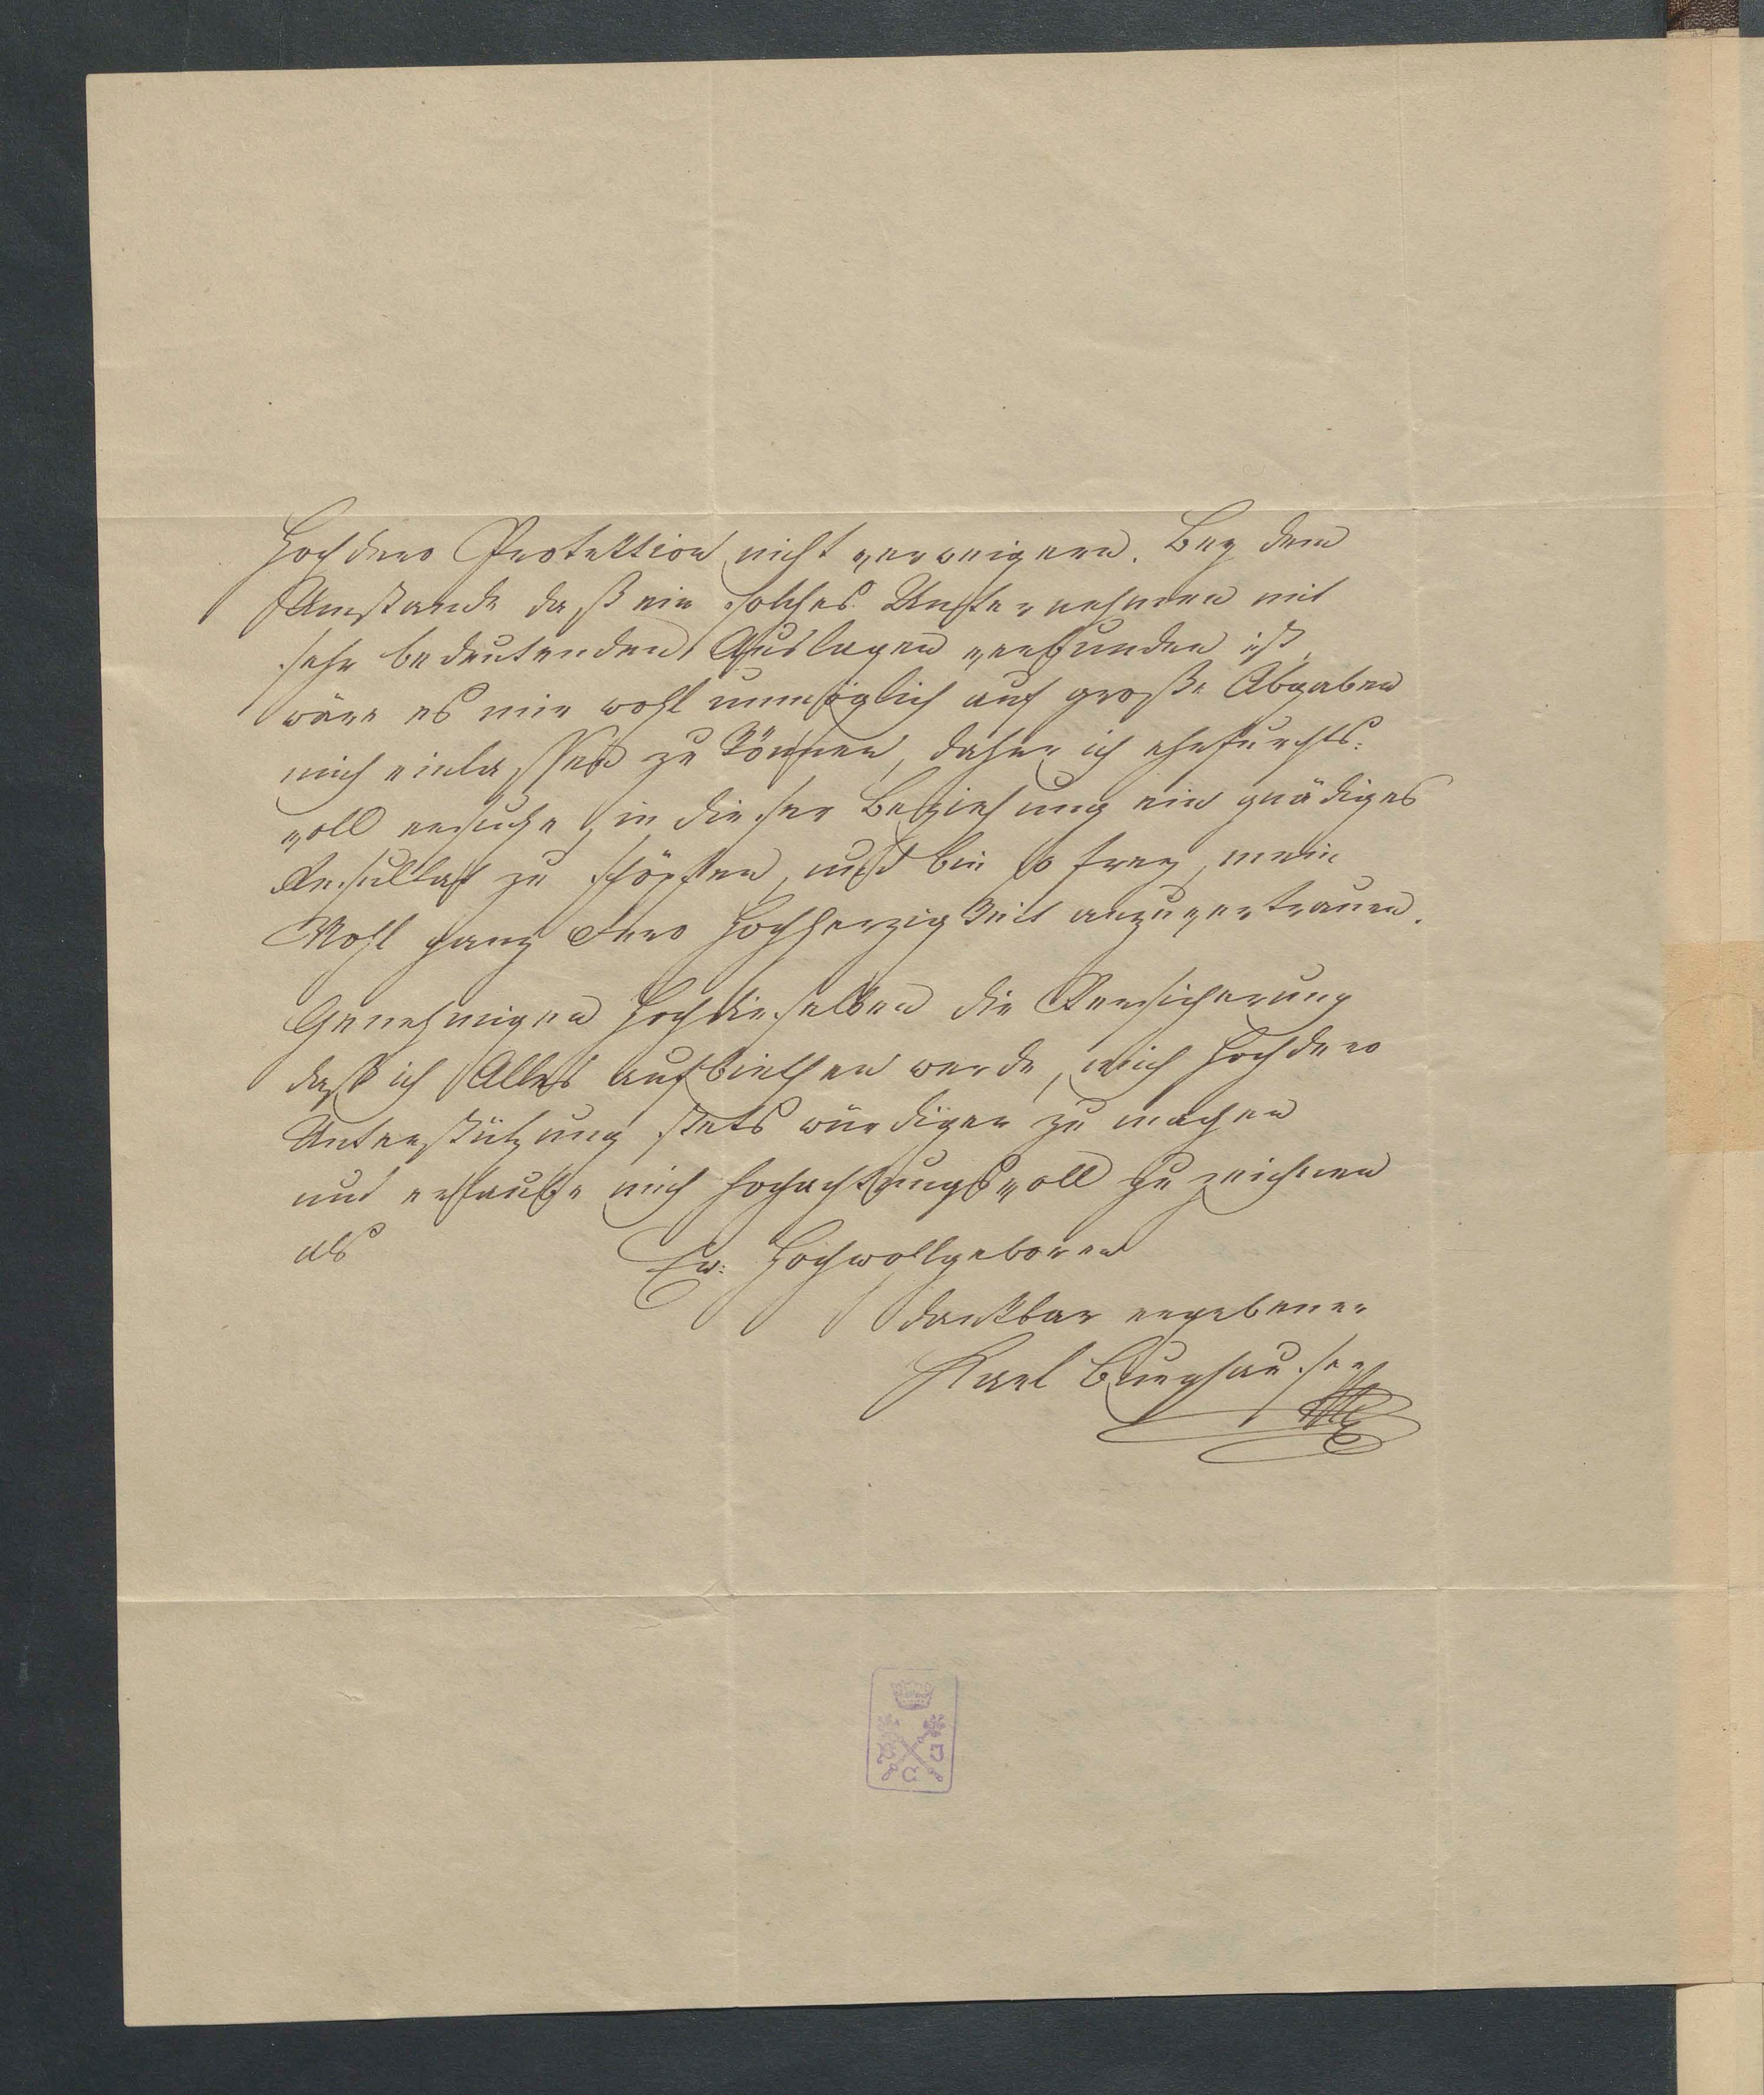 Hochdero Protektion nicht verweigern. Bey dem
Umstande daß ein solches Unternehmen mit
sehr bedeutenden Auslagen verbunden ist,
wäre es mir wohl unmöglich auf große Abgaben
mich einlassen zu können, daher ich ehrfurchts-
voll ersuche, in dieser Beziehung ein gnädiges
Resultat zu schöpfen, und bin so frey, mein
Wohl ganz Dero Hochherzigkeit anzuvertrauen.
Genehmigen Hochdieselben die Versicherung
daß ich Alles aufbiethen werde, mich Hochdero
Unterstützung stets würdiger zu machen
und erlaube mich hochachtungsvoll zu zeichnen
als Ew: Hochwollgeboren
dankbar ergebener
Karl Burghauser